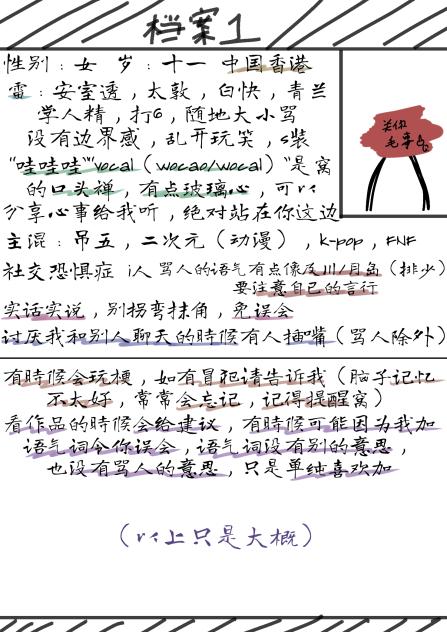 档案1
性别：女 岁：十一 中国香港
雷：安室透，太敦，白快，青兰
学人精，打6，随地大小骂
没有边界感，乱开玩笑，s装
“哇哇哇”“vocal（wocao/wocal）”是窝
的口头禅，有点玻璃心，可以
分享心事给我听，绝对站在你这边
关你
毛事
主混：吊五，二次元（动漫），K-pop，FNF
社交恐惧症 i人 骂人的语气有点像及川/月岛（排少）
要注意自己的言行
实话实说，别拐弯抹角，免误会
讨厌我和别人聊天的時候有人插嘴（骂人除外）
有時候会玩梗，如有冒犯请告诉我（脑子记忆
不太好，常常会忘记，记得提醒窝）
看作品的時候会给建议，有時候可能因为我加
语气词令你误会，语气词没有别的意思，
也没有骂人的意思，只是单纯喜欢加
（以上只是大概）